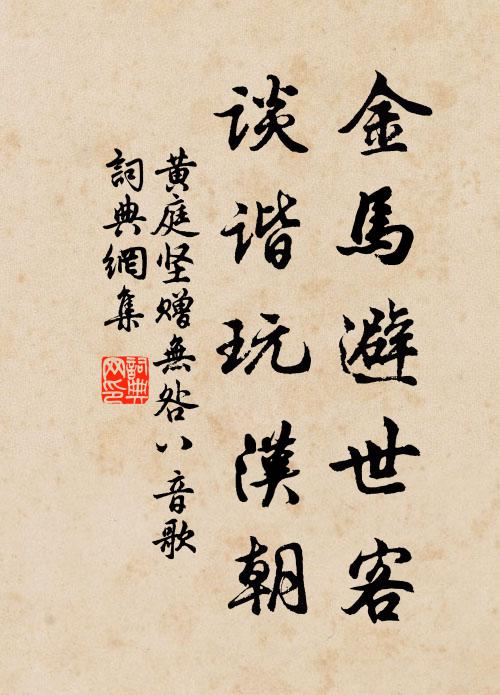 金馬避世客
談諧玩漢朝
黄庭坚贈無咎八音歌
詞典網集
詞典
网印